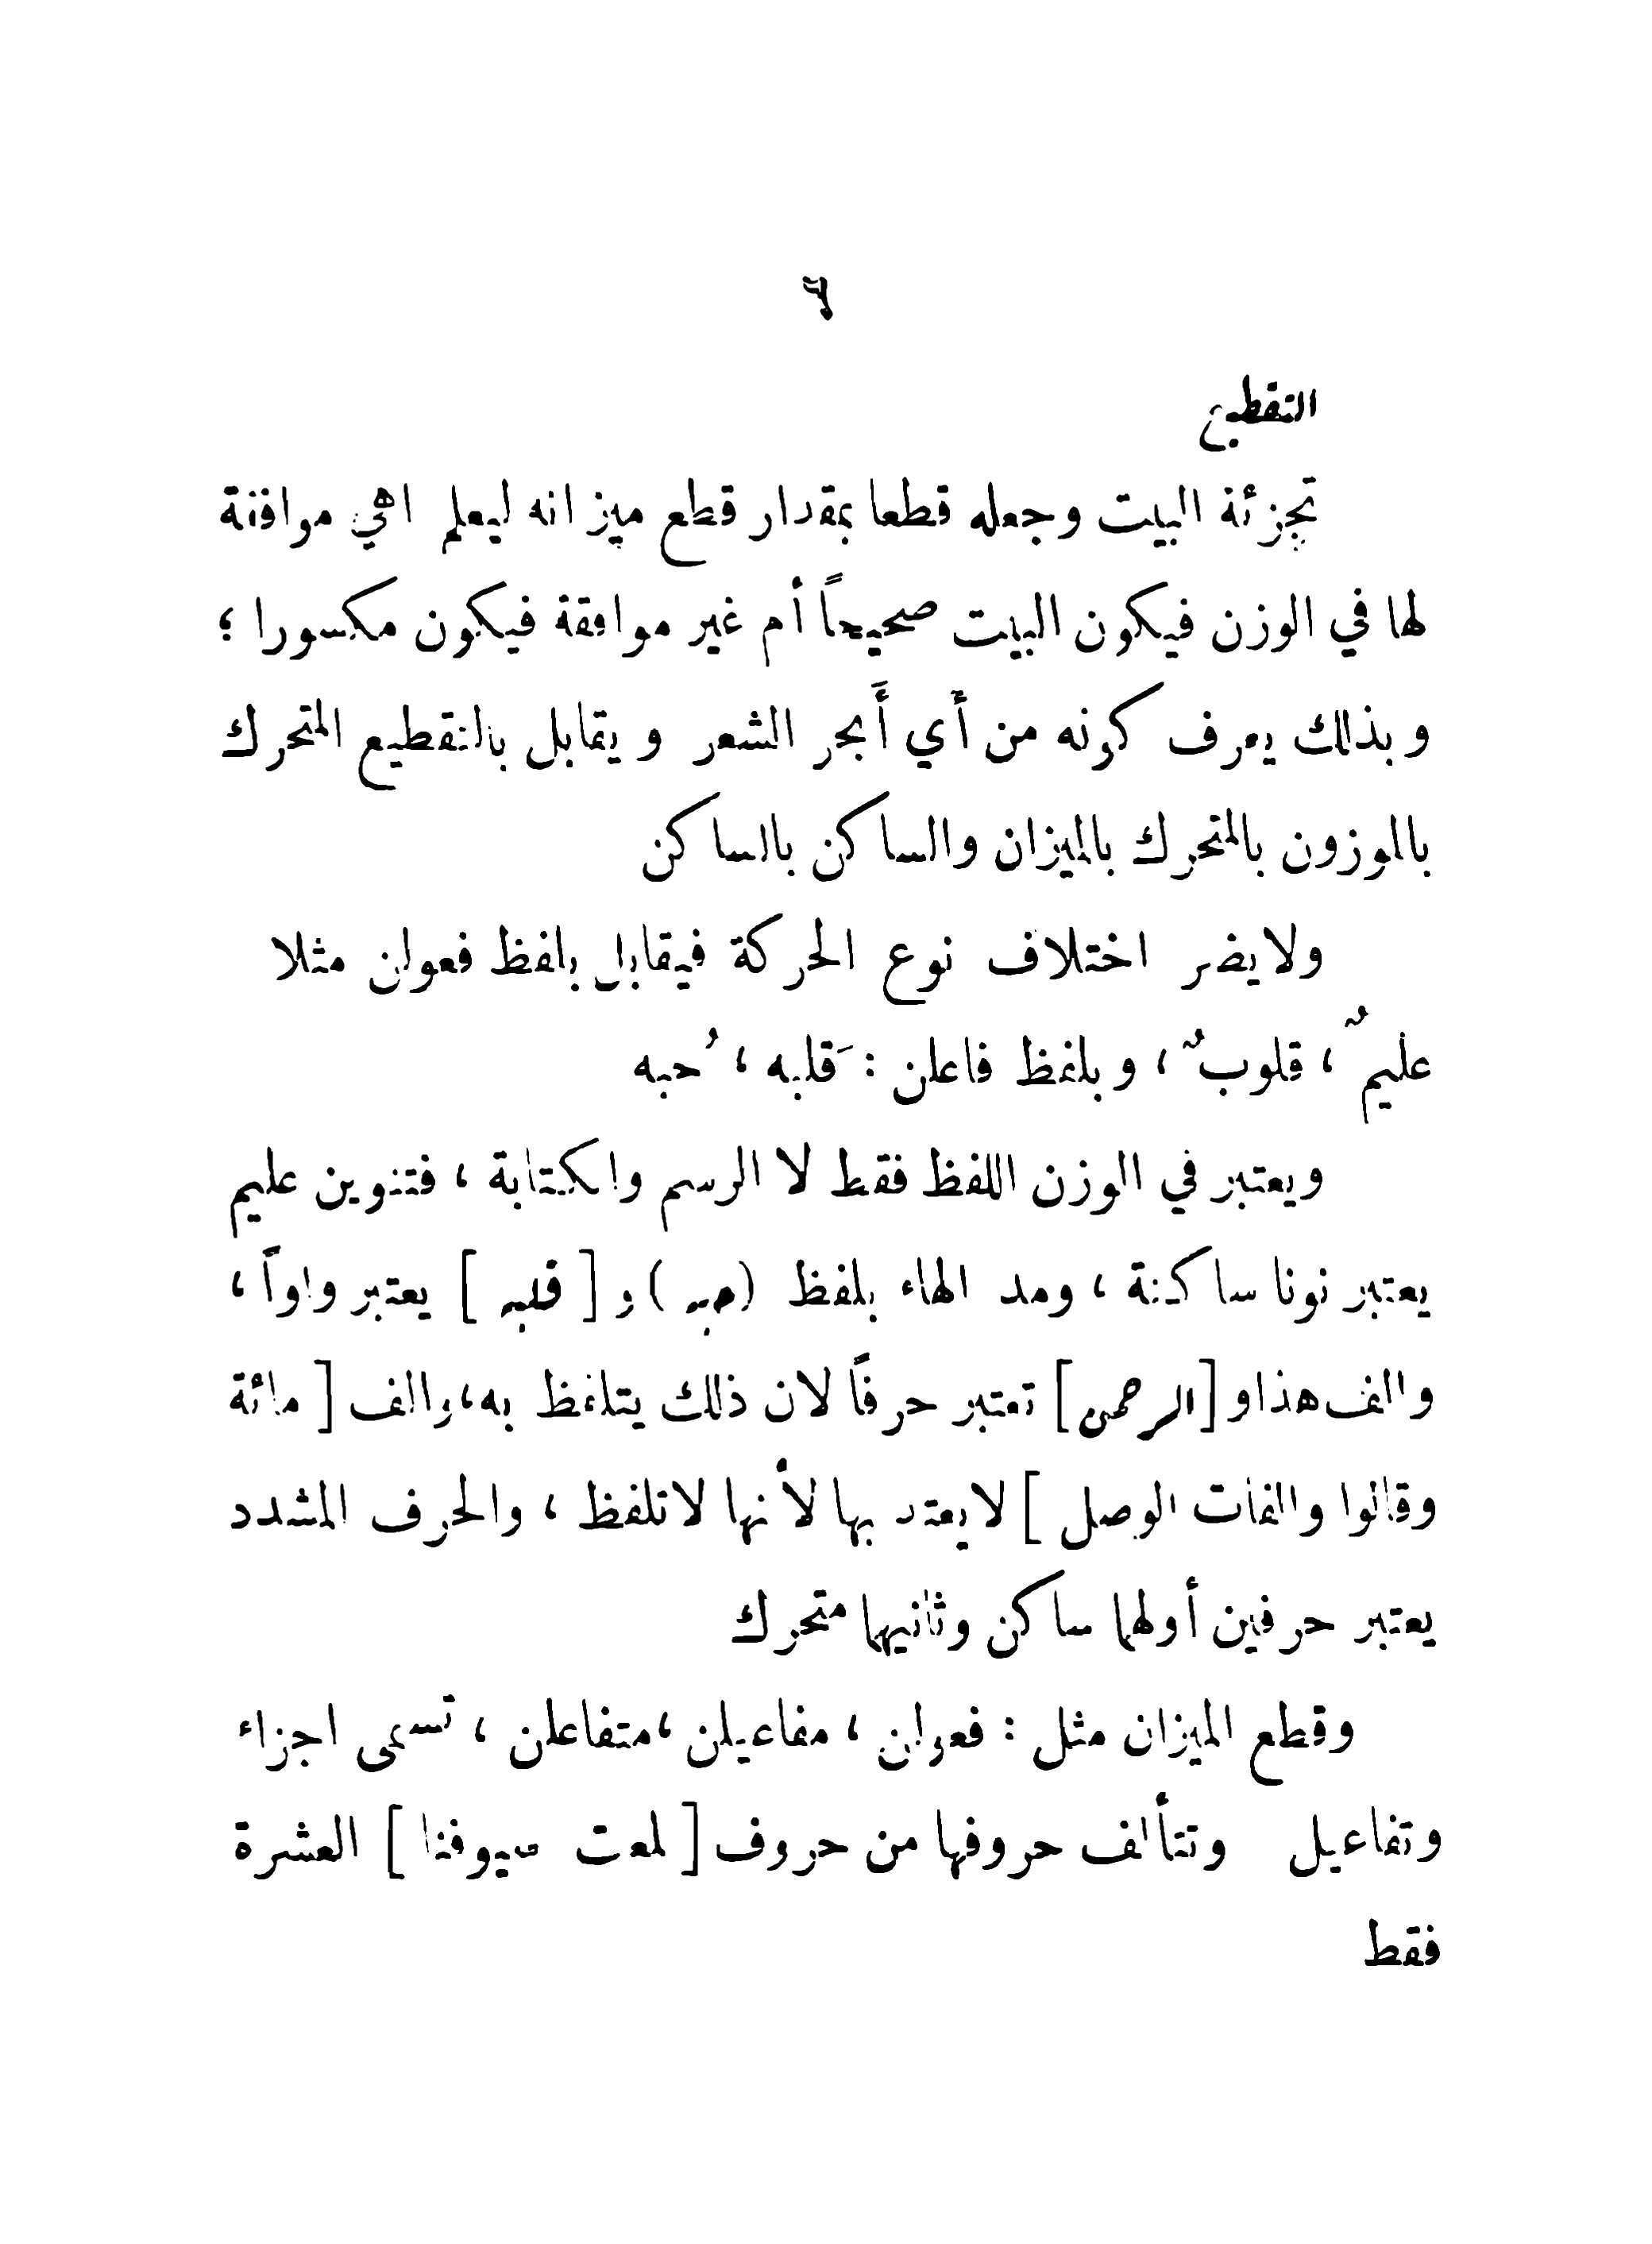 ٦
التقطيع
تجزئة البيت وجعله قطعا بمقدار قطع ميزانه ليعلم اهي موافقة
لها في الوزن فيكون البيت صحيحاً أم غير موافقة فيكون مكسورا ؛
وبذلك يعرف كونه من أي أَبحر الشعر ويقابل بالتقطيع المتحرك
بالموزون بالمتحرك بالميزان والساكن بالساكن
ولا يضر اختلاف نوع الحركة فيقابل بلفظ فعولن مثلا
عليمٌ ، قلوبٌ ، وبلفظ فاعلن : قَلبه ، حُبه
ويعتبر في الوزن اللفظ فقط لا الرسم والكتابة ، فتنوين عليم
يعتبر نونا ساكنة ، ومد الهاء بلفظ (حبه) و [ قلبه ] يعتبر واواً ،
والف هذا و [الرحمن] تعتبر حرفاً لان ذلك يتلفظ به ، والف [ مائة
وقالوا والفات الوصل ] لا يعتد بها لأنها لا تلفظ ، والحرف المشدد
يعتبر حرفين أولهما ساكن وثانيهما متحرك
وقطع الميزان مثل : فعولن ، مفاعيلن ، متفاعلن ، تسمى اجزاء
وتفاعيل وتتألف حروفها من حروف [ لمعت سيوفنا ] العشرة
فقط